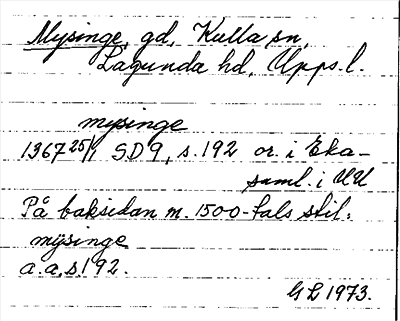 Mysinge, gd, Kulla sn,
Lagunda hd, Upps. l.
mysinge
1367 25/1 SD 9, s. 192 or. i Eka-
saml. i UU
På baksidan m. 1500-tals stil.
mÿsinge
a.a, s. 192.
GL 1973.